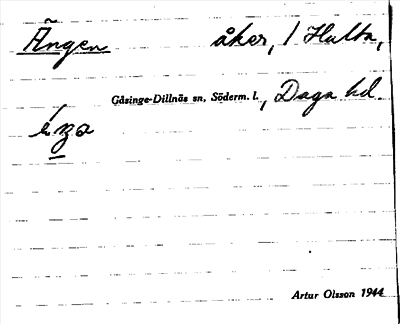 Ängen åker, 1 Hulta,
Gåsinge-Dillnäs sn, Söderm. l., Daga hd.
Artur Olsson 1944